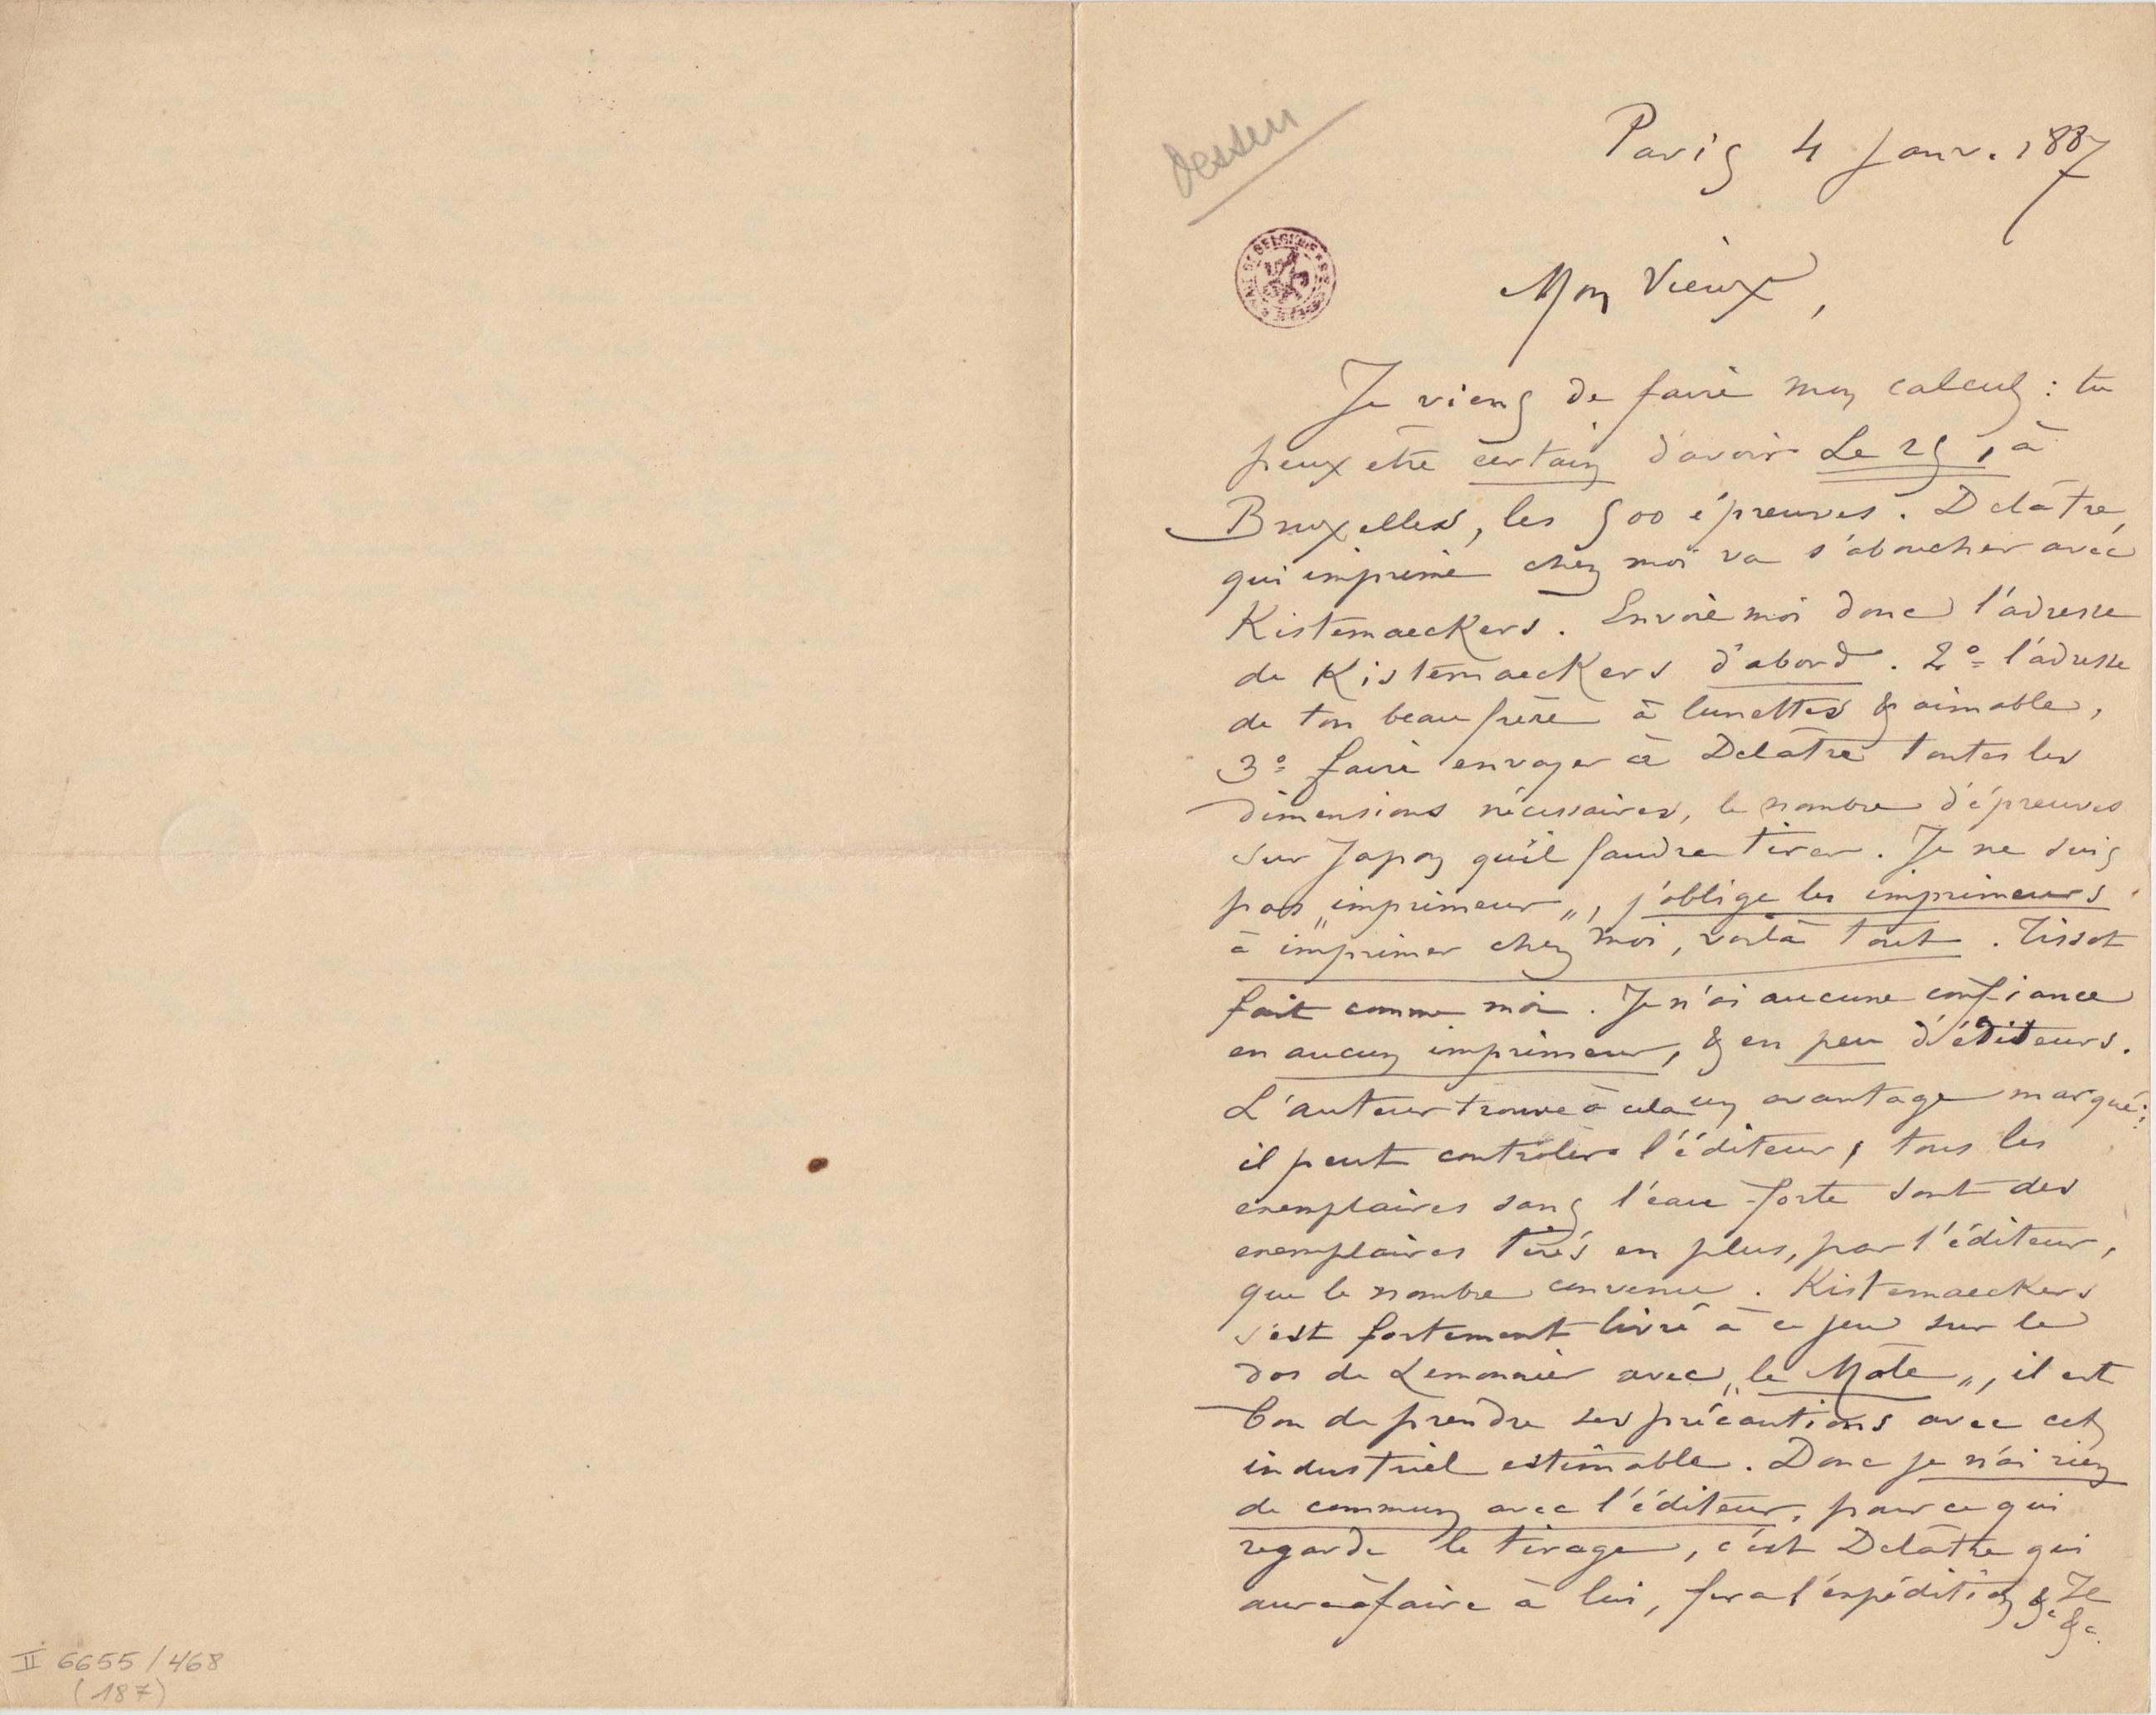 Dessin
Paris 4 Janv. 1887
Mon Vieux,
Je viens de faire mon calcul : tu
peux etre certain d'avoir Le 25, à
Bruxelles, les 500 épreuves. Delâtre,
qui imprime chez moi va s'aboucher avec
Kistemaeckers. Envoie moi donc l'adresse
de Kistemaeckers d'abord. 2º l'adresse
de ton beau frère à lunettes & aimable,
3º faire envoyer à Delâtre toutes les
dimensions nécessaires, le nombre d'épreuves
sur Japon qu'il faudra tirer. Je ne suis
pas „imprimeur„, j'oblige les imprimeurs
à imprimer chez moi, voilà tout. Tissot
fait comme moi. Je n'ai aucune confiance
en aucun imprimeur, & en peu d'éditeurs.
L'auteur trouve à cela un avantage marqué :
il peut controler l'éditeur, tous les
exemplaires sans l'eau-forte sont des
exemplaires tirés en plus, par l'éditeur,
que le nombre convenu. Kistemaeckers
s'est fortement livré à ce jeu sur le
dos de Lemonnier avec „le Mâle„, il est
bon de prendre ses précautions avec cet
industriel estimable. Donc je n'ai rien
de commun avec l'éditeur, pour ce qui
regarde le tirage, c'est Delâtre qui
aura àfaire à lui, fera l'expédition &c
&c.
II 6655/468
(187)